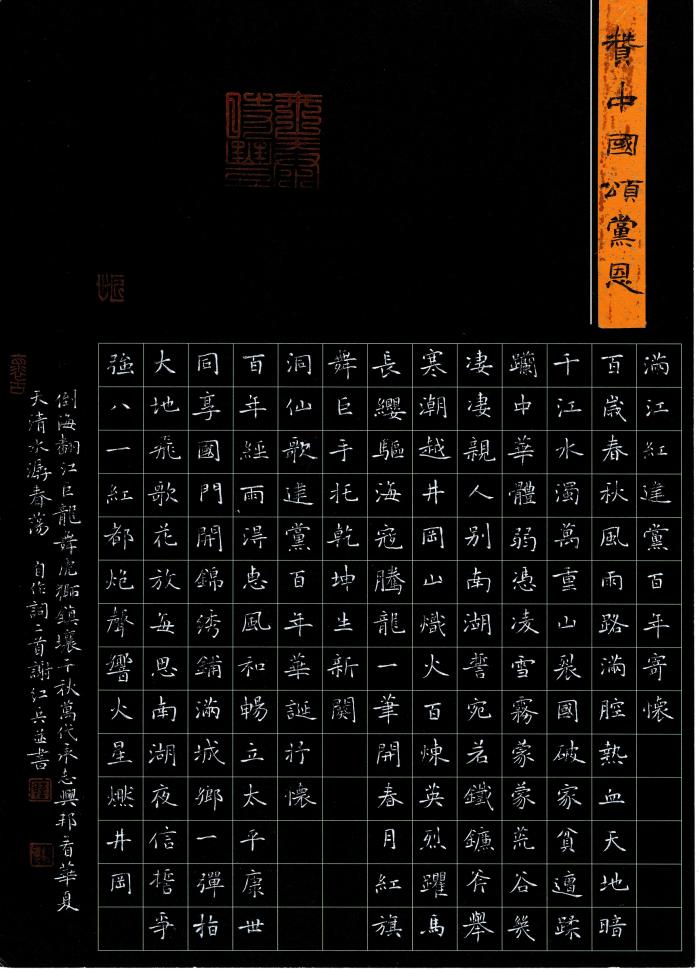 贊中國頌黨恩
滿江紅建黨百年寄懷
百歲春秋風雨路滿腔熱血天地暗
千江水濁萬重山裂國破家貧遭蹂
躪中華體弱憑凌雪霧蒙蒙荒谷幾
淒淒親人別南湖誓宛若鐵鑣斧舉
寒潮越井岡山熾火百煉英烈躍馬
長纓驅海寇騰龍一筆開春月紅旗
舞巨手托乾坤生新闋
洞仙歌建黨百年華誕抒懷
百年經雨得惠風和暢立太平康世
同享國門開錦綉鋪滿城鄉一彈指
大地飛歌花放每思南湖夜信誓爭
強八一紅都炮聲響火星燃井岡
倒海翻江巨龍舞虎獅鎮壤千秋萬代承志興邦看華夏
天清水潺春蕩 自作詞二首謝紅兵並書